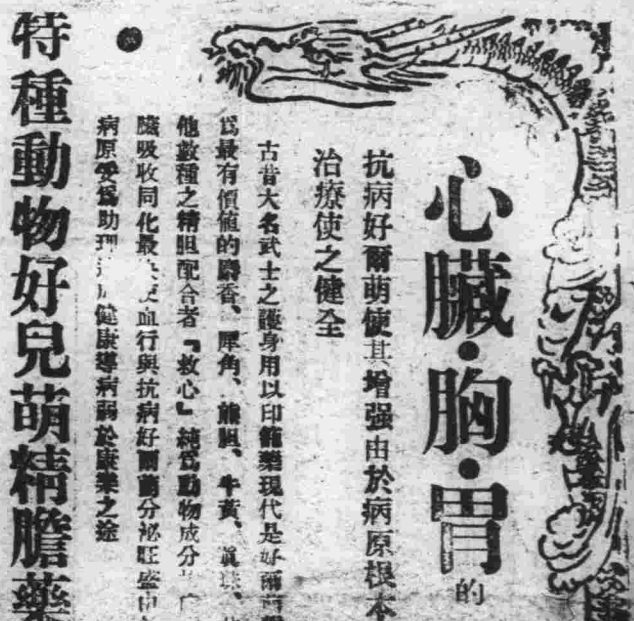 心臟・胸・胃的
抗病好爾萌使其增强由於病原根本
治療使之健全
古昔大名武士之護身用以印籠藥現代是好爾萌
爲最有價値的麝香、犀角、熊胆、牛黃、眞珠、
他數種之精胆配合者『救心』純爲動物成分
臟吸收同化最 血行與抗病好爾萌分泌旺盛由
病原 爲助理 健康導病弱於康樂之途
特種動物好兒萌精膽藥